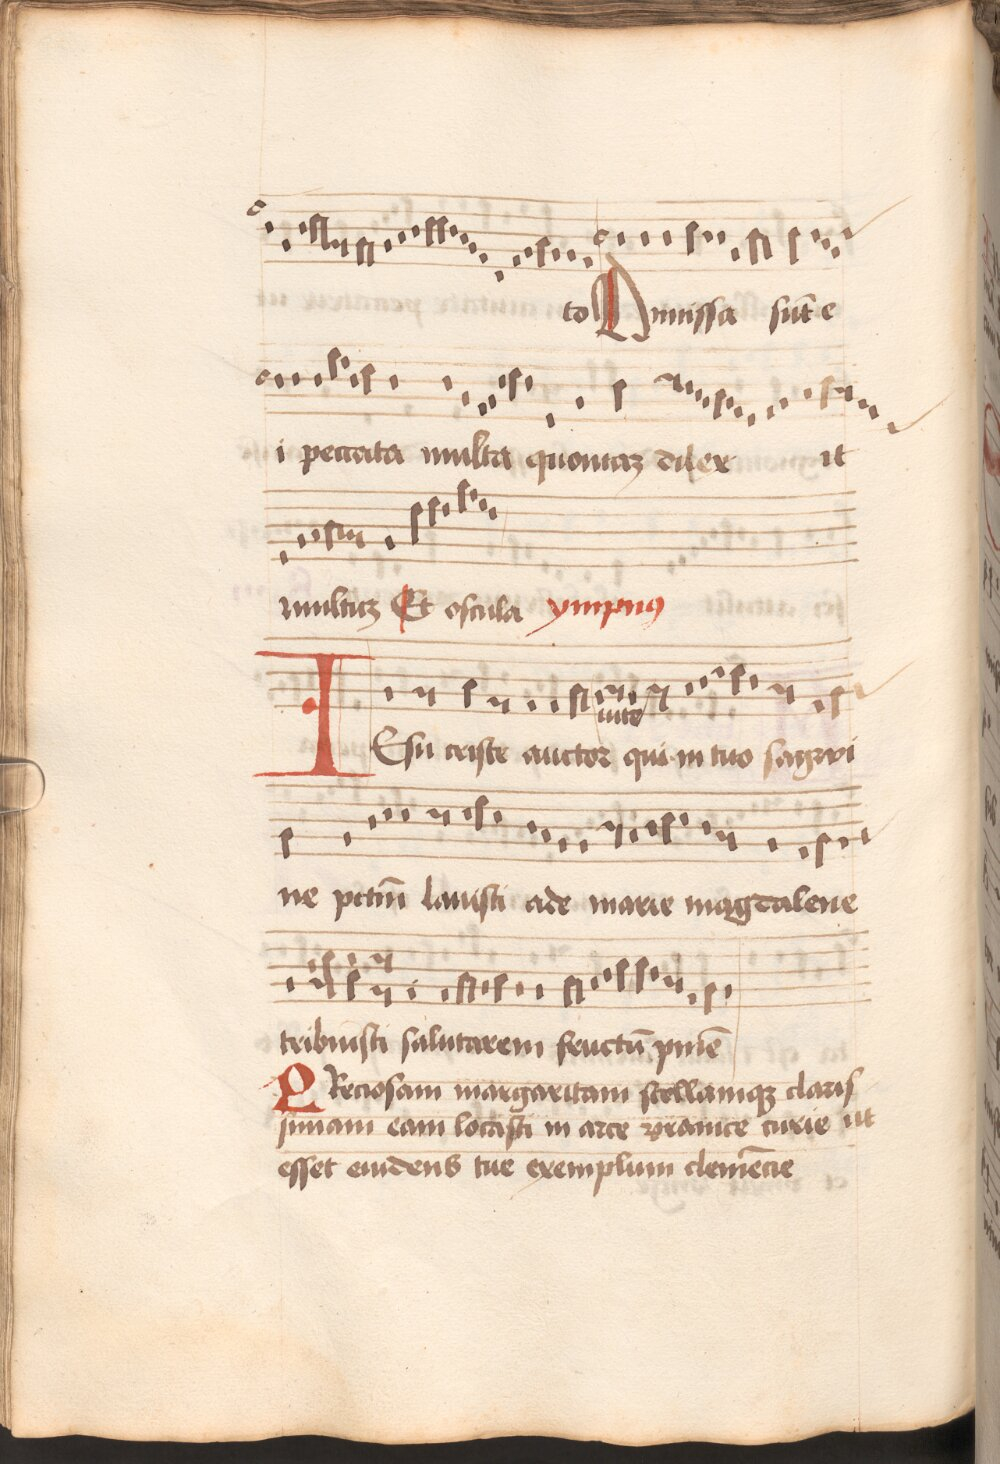 to Dimissa sūt e
i peccata multa quoniaꝫ dilex it
multuꝫ Et oscula ympnꝰ
vite
IEsu criste auctor qui in tuo sagwi
ne pctm̄ lavisti cide marie magdalene
tribuisti salutarem fructū pnīe
PReciosam margaritam stellamqꝫ claris
simam eam locasti in arce uranice curie ut
esset euidens tue exemplum clemēcie